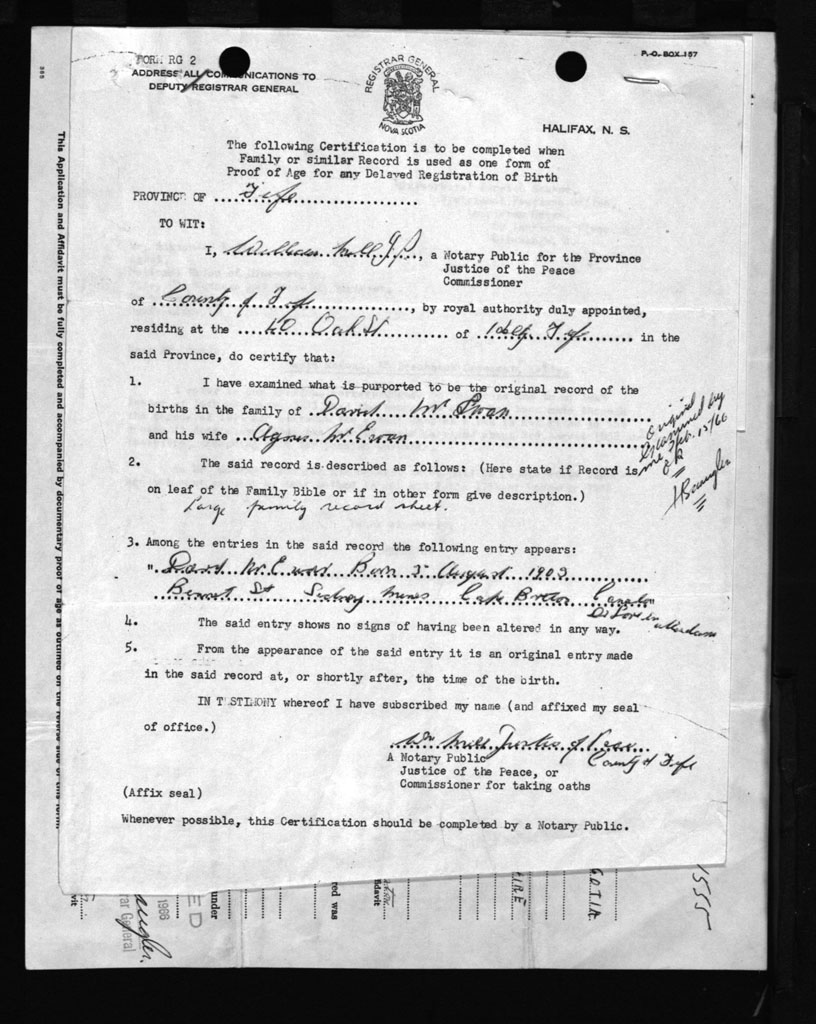 FORM RG 2
ADDRESS ALL COMMUNICATIONS TO
DEPUTY REGISTRAR GENERAL
REGISTRAR GENERAL
NOVA SCOTIA
P. O. BOX 157
HALIFAX, N. S.
The following Certification is to be completed when
Family or similar Record is used as one form of
Proof of Age for any Delayed Registration of Birth
PROVINCE OF Fife
TO WIT:
I, William Mill J.P., a Notary Public for the Province
Justice of the Peace
Commissioner
of County of Fife, by royal authority duly appointed,
residing at the 40 Oak St of Fife in the
said Province, do certify that:
1. I have examined what is purported to be the original record of the
births in the family of David McEwan
and his wife Agnes McEwan
Original
Examined by
me Feb. 15/66
OK
HBeangler
2. The said record is described as follows: (Here state if Record is
on leaf of the Family Bible or if in other form give description.)
Large family record sheet.
3. Among the entries in the said record the following entry appears:
" David McEwan Born 5 August 1903
Bennet St Sydney Mines Cape Breton Canada"
4. The said entry shows no signs of having been altered in any way.
5. From the appearance of the said entry it is an original entry made
in the said record at, or shortly after, the time of the birth.
IN TESTIMONY whereof I have subscribed my name (and affixed my seal
of office.)
Wm Mill Justice of Peace
County of Fife
A Notary Public
Justice of the Peace, or
Commissioner for taking oaths
(Affix seal)
Whenever possible, this Certification should be completed by a Notary Public.
This Application and Affidavit must be fully completed and accompanied by documentary proof of age as outlined on the reverse side of this form.
under
red was
1555